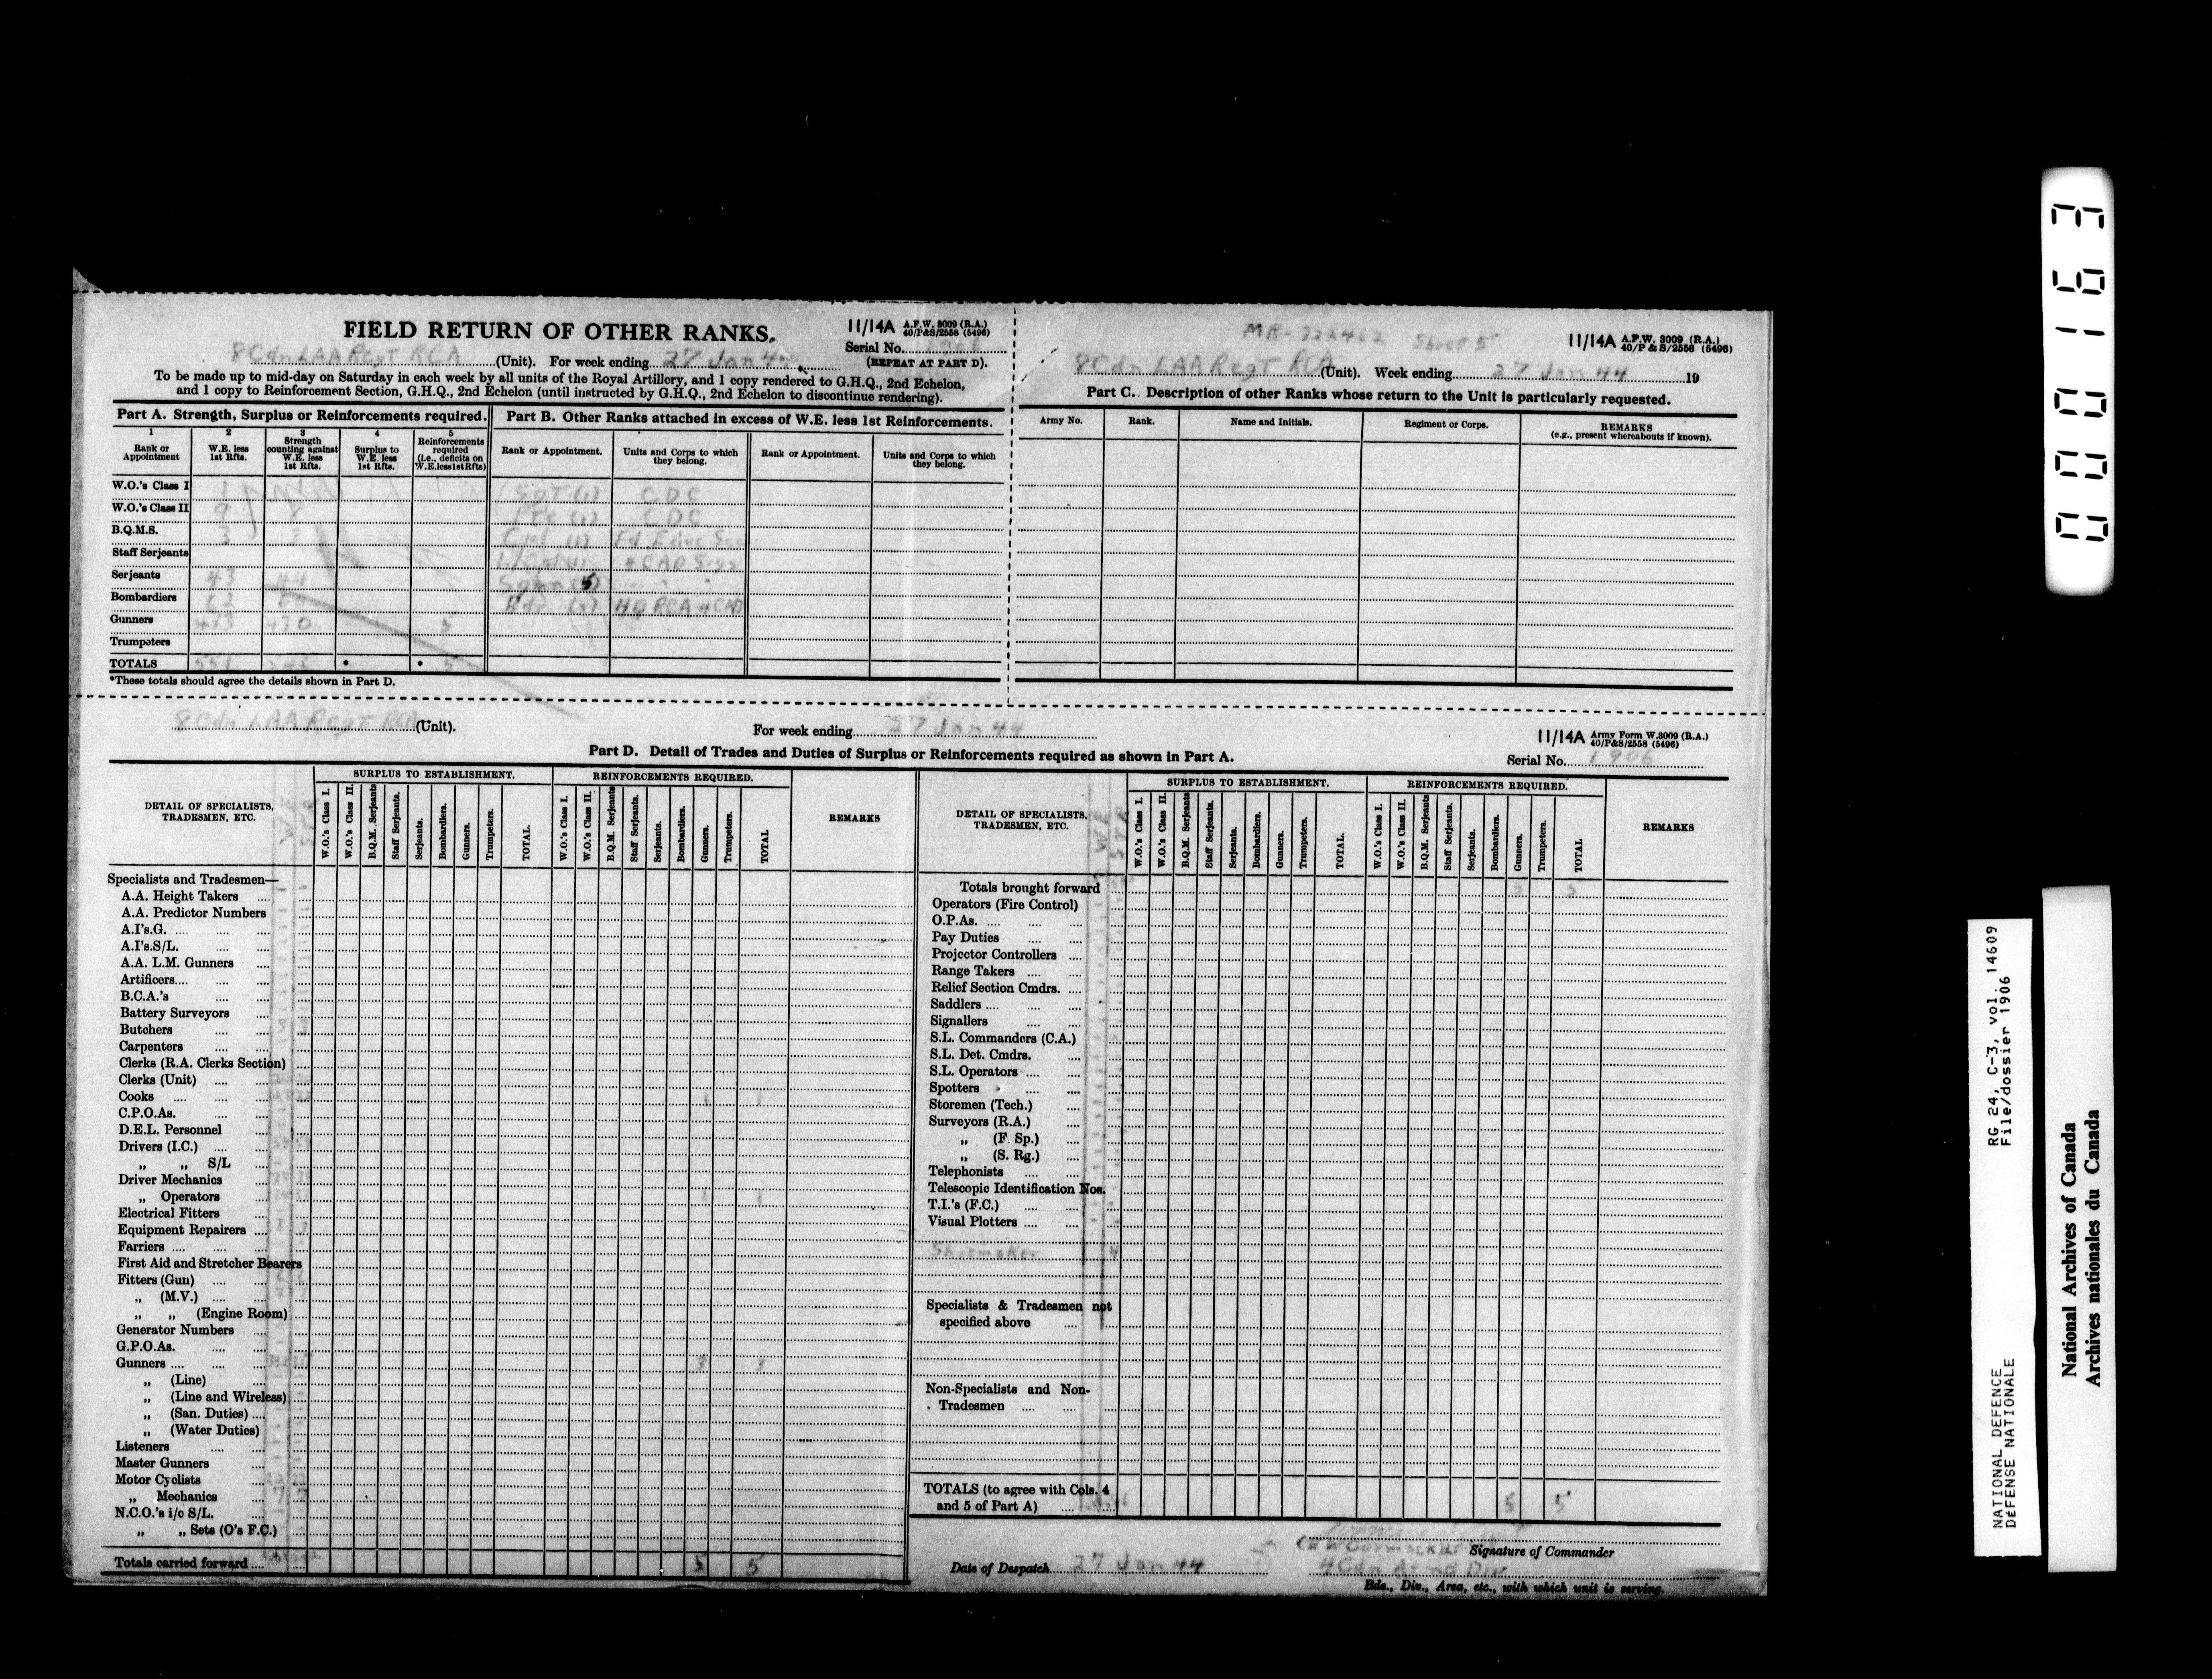 FIELD RETURN OF OTHER RANKS.
11/14A A.F.W. 3009 (R.A.)
40/P&S/2558 (5496)
Serial No.
8 Cdn LAA Regt RCA (Unit). For week ending 27 Jan 44
(REPEAT AT PART D).
To be made up to mid-day on Saturday in each week by all units of the Royal Artillery, and 1 copy rendered to G.H.Q., 2nd Echelon,
and 1 copy to Reinforcement Section, G.H.Q., 2nd Echelon (until instructed by G.H.Q., 2nd Echelon to discontinue rendering).
Part A. Strength, Surplus or Reinforcements required.
1 2 3 4 5
Rank or Appointment
W.E. less 1st Rfts.
Strength counting against W.E. less 1st Rfts.
Surplus to W.E. less 1st Rfts.
Reinforcements required (i.e., deficits on W.E. less 1st Rfts)
W.O.'s Class I 1
W.O.'s Class II 9 8
B.Q.M.S. 3
Staff Serjeants
Serjeants 43 44
Bombardiers
Gunners 430 5
Trumpeters
TOTALS 551 * * 5
*These totals should agree the details shown in Part D.
Part B. Other Ranks attached in excess of W.E. less 1st Reinforcements.
Rank or Appointment. Units and Corps to which they belong. Rank or Appointment. Units and Corps to which they belong.
Sgt (1) CDC
Pte (1) CDC
Cpl (1) Fd Educ
4 CAD Sigs
(5)
HQ RCA 4 CAD
MR-322462 Sheet 5
11/14A A.F.W. 3009 (R.A.)
40/P & S/2558 (5496)
8 Cdn LAA Regt RCA (Unit). Week ending 27 Jan 44 19
Part C. Description of other Ranks whose return to the Unit is particularly requested.
Army No. Rank. Name and Initials. Regiment or Corps. REMARKS
(e.g., present whereabouts if known).
8 Cdn LAA Regt RCA (Unit). For week ending 27 Jan 44
11/14A Army Form W.3009 (R.A.)
40/P&S/2558 (5496)
Part D. Detail of Trades and Duties of Surplus or Reinforcements required as shown in Part A.
Serial No. 1906
DETAIL OF SPECIALISTS, TRADESMEN, ETC.
SURPLUS TO ESTABLISHMENT. REINFORCEMENTS REQUIRED. REMARKS
W.O.'s Class I. W.O.'s Class II. B.Q.M. Serjeants Staff Serjeants. Serjeants. Bombardiers. Gunners. Trumpeters. TOTAL.
W.O.'s Class I. W.O.'s Class II. B.Q.M. Serjeants Staff Serjeants. Serjeants. Bombardiers. Gunners. Trumpeters. TOTAL
Specialists and Tradesmen—
A.A. Height Takers
A.A. Predictor Numbers
A.I's.G.
A.I's.S/L.
A.A. L.M. Gunners
Artificers
B.C.A.'s
Battery Surveyors
Butchers
Carpenters
Clerks (R.A. Clerks Section)
Clerks (Unit)
Cooks 1 1
C.P.O.As.
D.E.L. Personnel
Drivers (I.C.)
„ „ S/L
Driver Mechanics
„ Operators 1 1
Electrical Fitters
Equipment Repairers
Farriers
First Aid and Stretcher Bearers
Fitters (Gun)
„ (M.V.)
„ „ (Engine Room)
Generator Numbers
G.P.O.As.
Gunners 3 3
„ (Line)
„ (Line and Wireless)
„ (San. Duties)
„ (Water Duties)
Listeners
Master Gunners
Motor Cyclists
„ Mechanics
N.C.O.'s i/c S/L.
„ „ Sets (O's F.C.)
Totals carried forward 5 5
DETAIL OF SPECIALISTS, TRADESMEN, ETC.
SURPLUS TO ESTABLISHMENT. REINFORCEMENTS REQUIRED. REMARKS
W.O.'s Class I. W.O.'s Class II. B.Q.M. Serjeants Staff Serjeants. Serjeants. Bombardiers. Gunners. Trumpeters. TOTAL.
W.O.'s Class I. W.O.'s Class II. B.Q.M. Serjeants Staff Serjeants. Serjeants. Bombardiers. Gunners. Trumpeters. TOTAL
Totals brought forward 5 5
Operators (Fire Control)
O.P.As.
Pay Duties
Projector Controllers
Range Takers
Relief Section Cmdrs.
Saddlers
Signallers
S.L. Commanders (C.A.)
S.L. Det. Cmdrs.
S.L. Operators
Spotters
Storemen (Tech.)
Surveyors (R.A.)
„ (F. Sp.)
„ (S. Rg.)
Telephonists
Telescopic Identification Nos.
T.I.'s (F.C.)
Visual Plotters
Shoemaker
Specialists & Tradesmen not
specified above
Non-Specialists and Non-
Tradesmen
TOTALS (to agree with Cols. 4
and 5 of Part A) 5 5
Signature of Commander
Date of Despatch 27 Jan 44
4 Cdn Armd Div
Bde., Div., Area, etc., with which unit is serving.
000163
RG 24, C-3, vol. 14609
File/dossier 1906
NATIONAL DEFENCE
DEFENSE NATIONALE
National Archives of Canada
Archives nationales du Canada